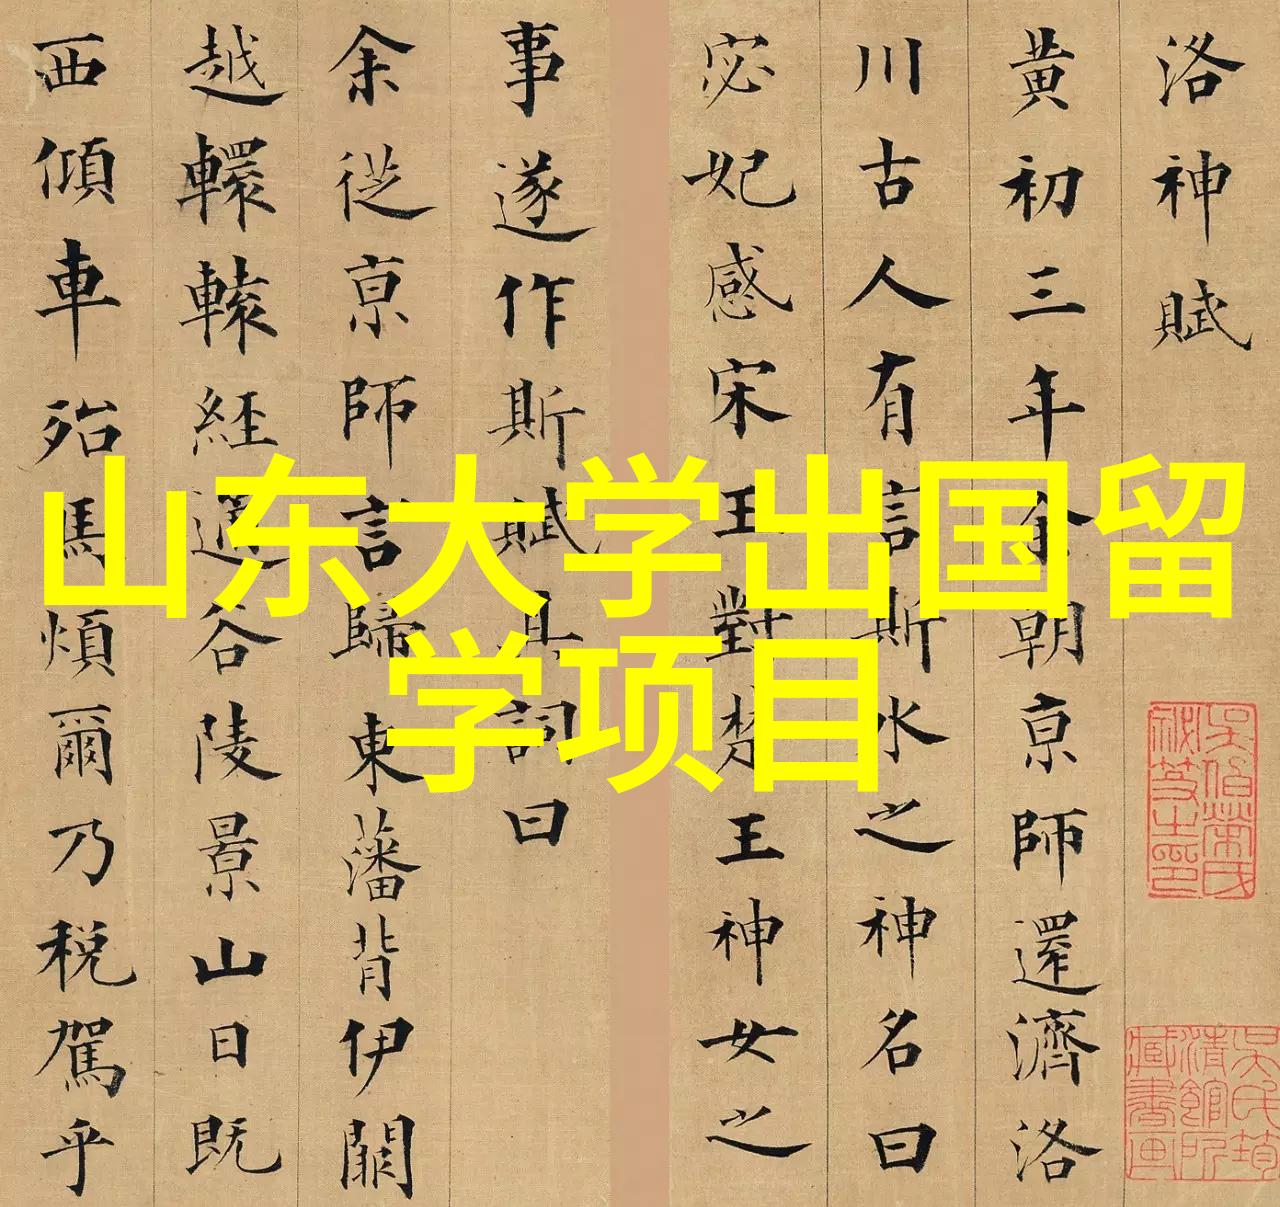 山东大学出国留
学项目
洛神賦
黄初三年余朝京師還濟洛
川古人有言斯水之神名曰
宓妃感宋玉對楚王神女之
事遂作斯賦其詞曰
余從京師言歸東藩背伊闕
越轘轅經通谷陵景山日既
西傾車殆馬煩爾乃稅駕乎
吳氏筠
清館所
藏書画